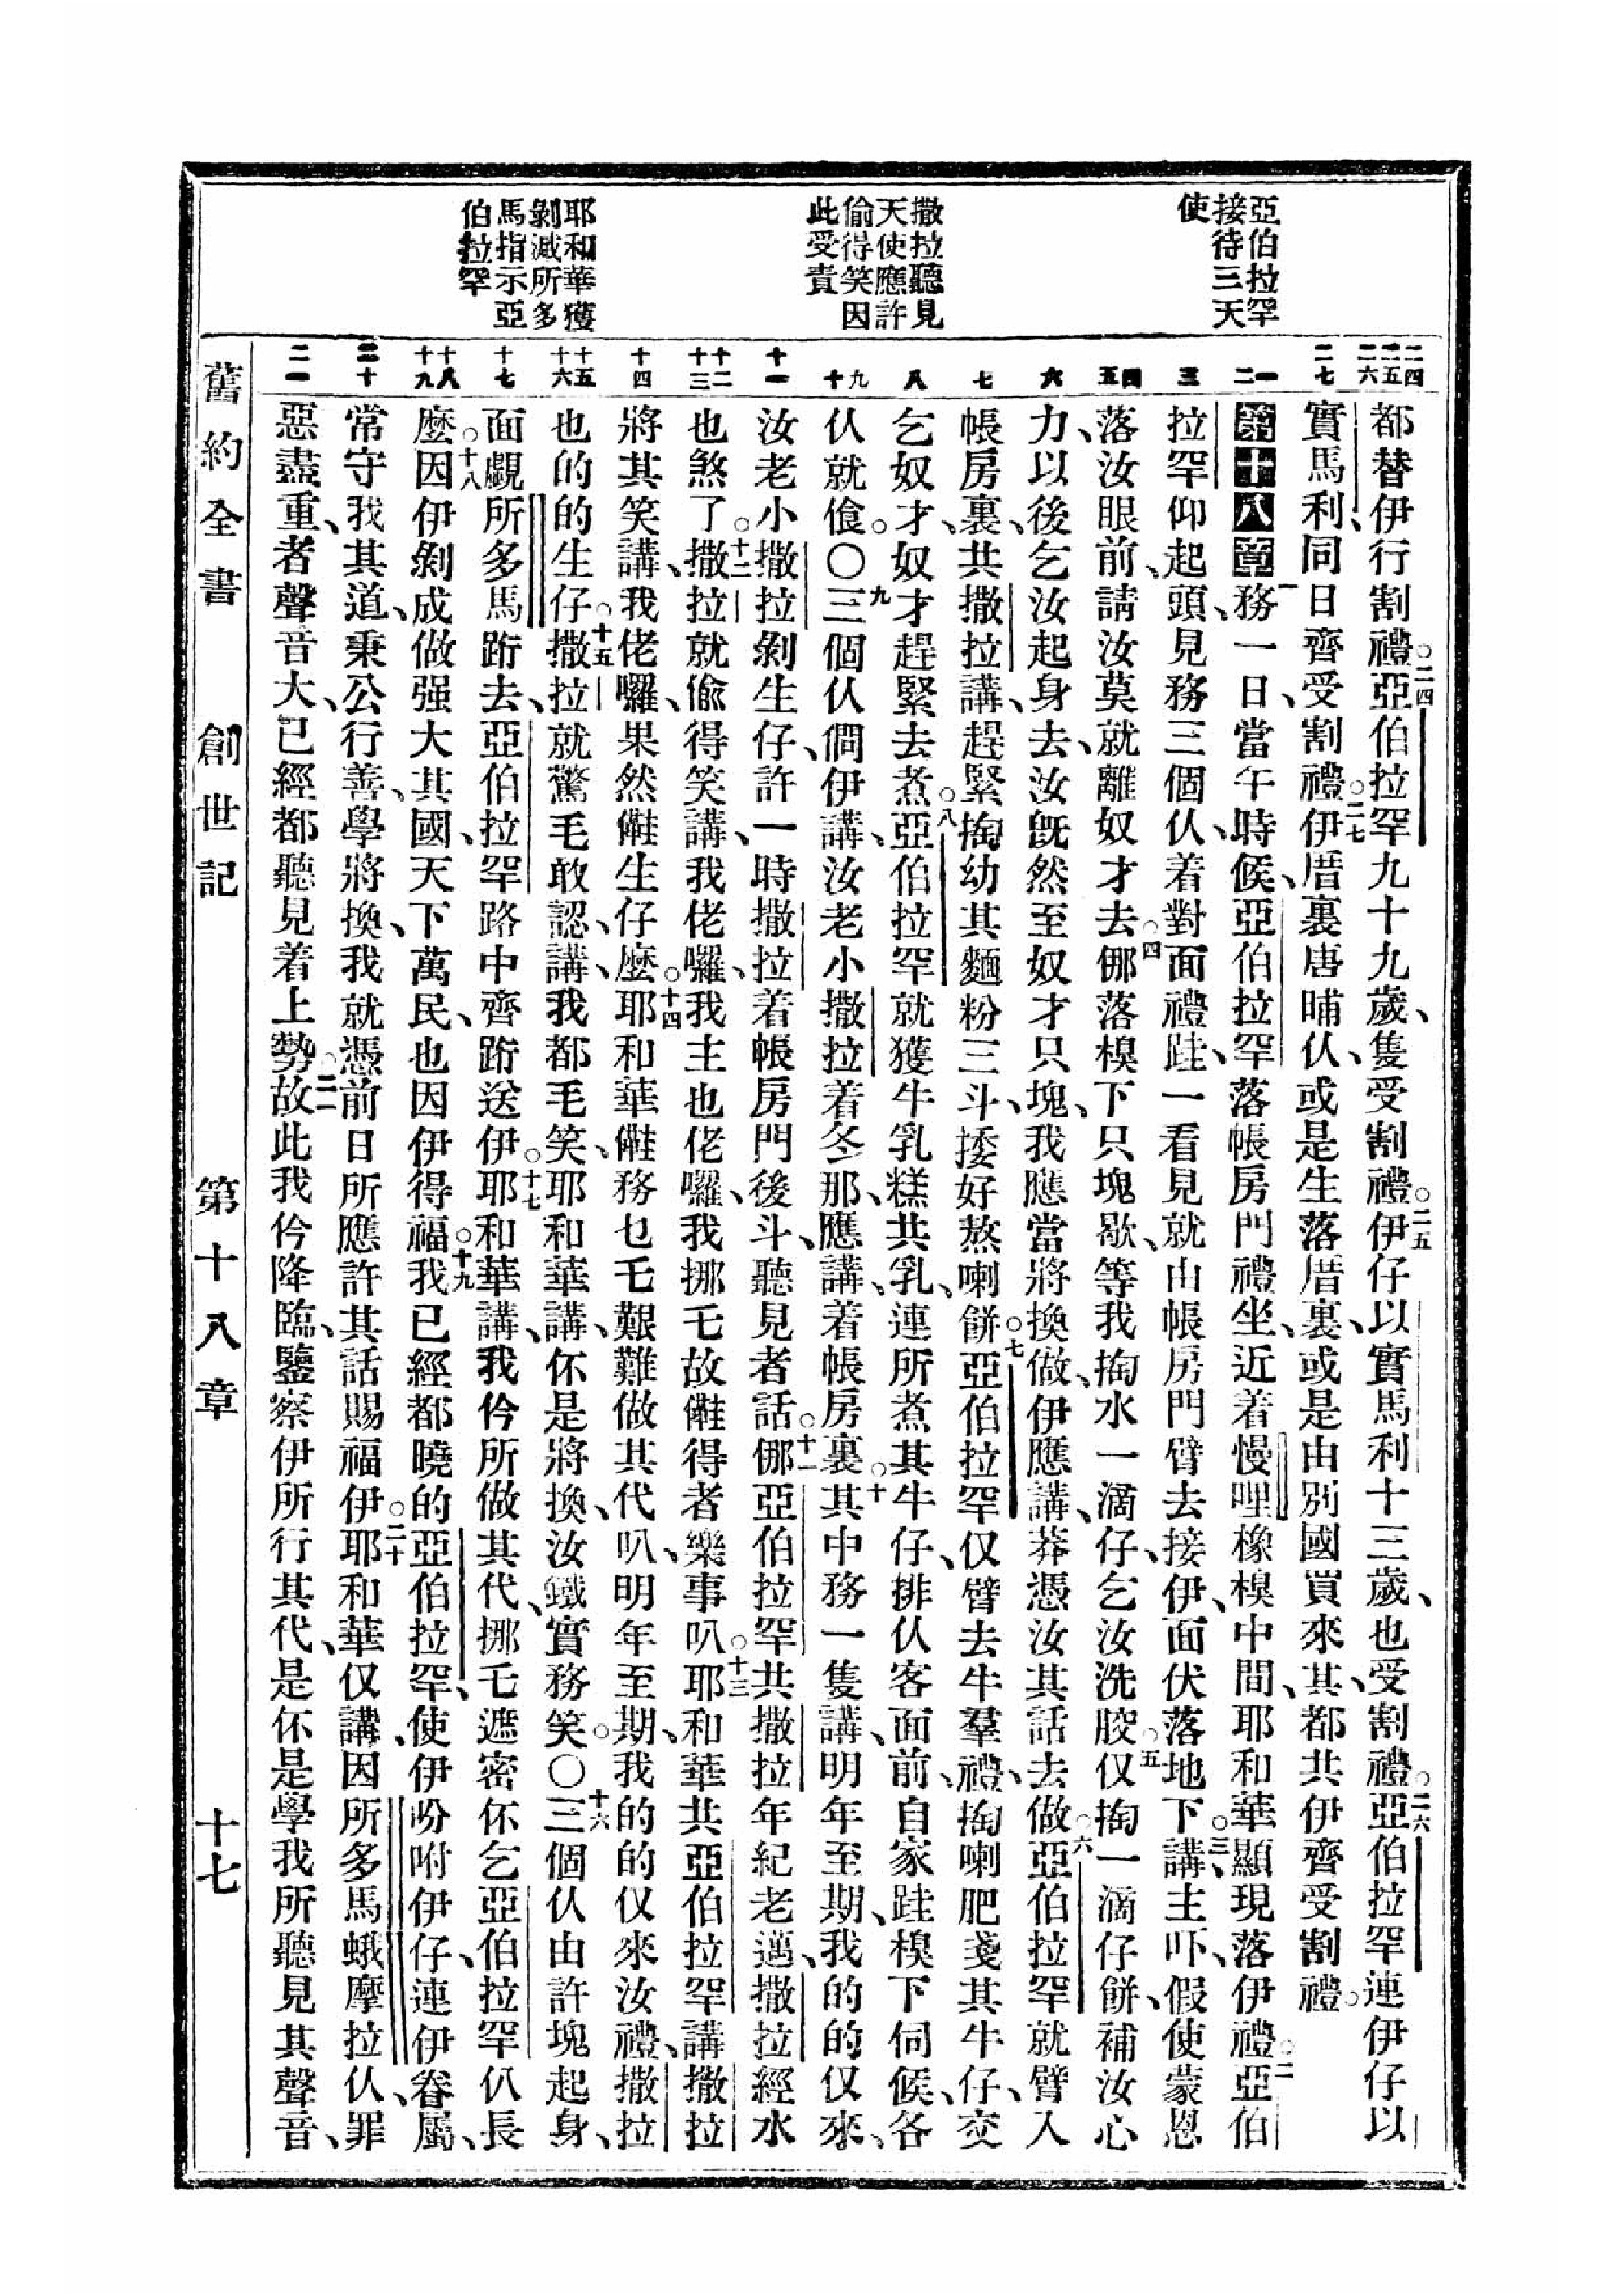 亞伯拉罕
接待三天
使
撒拉聽見
天使應許
偷得笑因
此受責
耶和華獲
剝滅所多
馬指示亞
伯拉罕
二四
二五
二六
二七
一
二
三
四
五
六
七
八
九
十
十一
十二
十三
十四
十五
十六
十七
十八
十九
二十
二一
都替伊行割禮。二四亞伯拉罕九十九歲、隻受割禮。二五伊仔以實馬利十三歲、也受割禮。二六亞伯拉罕連伊仔以
實馬利、同日齊受割禮。二七伊厝裏唐晡伙、或是生落厝裏、或是由別國買來其、都共伊齊受割禮。
第十八章一務一日、當午時候、亞伯拉罕落帳房門禮坐、近着慢哩橡模中間、耶和華顯現落伊禮。二亞伯
拉罕仰起頭、見務三個伙、着對面禮跬、一看見就由帳房門臂去接伊、面伏落地下。三講、主吓、假使蒙恩
落汝眼前、請汝莫就離奴才去。四倻落模下只塊歇、等我掏水一滴仔、乞汝洗骹。五仅掏一滴仔餅、補汝心
力、以後乞汝起身去、汝旣然至奴才只塊、我應當將換做、伊應講、莽憑汝其話去做。六亞伯拉罕就臂入
帳房裏、共撒拉講、趕緊掏幼其麵粉三斗、捼好熬喇餅。七亞伯拉罕仅臂去牛羣禮、掏喇肥戔其牛仔、交
乞奴才、奴才趕緊去煮。八亞伯拉罕就獲牛乳糕共乳、連所煮其牛仔、排伙客面前、自家跬模下伺候、各
伙就飡。○九三個伙僩伊講、汝老小撒拉着冬那、應講、着帳房裏。十其中務一隻講、明年至期、我的的仅來、
汝老小撒拉剝生仔、許一時撒拉着帳房門後斗、聽見者話。十一倻亞伯拉罕共撒拉年紀老邁、撒拉經水
也煞了。十二撒拉就偸得笑講、我佬囉、我主也佬囉、我挪乇故儺得者樂事叭。十三耶和華共亞伯拉罕講、撒拉
將其笑講、我佬囉、果然儺生仔麼。十四耶和華儺務乜乇艱難做其代叭、明年至期、我的的仅來汝禮、撒拉
也的的生仔。十五撒拉就驚毛敢認、講、我都毛笑、耶和華講、伓是將換、汝鐵實務笑。○十六三個伙由許塊起身、
面覷所多馬跡去、亞伯拉罕路中齊跡送伊。十七耶和華講、我仱所做其代、挪乇遮密伓乞亞伯拉罕仈長
麼。十八因伊剝成做强大其國、天下萬民、也因伊得福。十九我已經都曉的亞伯拉罕、使伊吩咐伊仔、連伊眷屬、
常守我其道、秉公行善、學將換、我就憑前日所應許其話賜福伊。二十耶和華仅講、因所多馬蛾摩拉伙、罪
惡盡重、者聲音大、已經都聽見着上勢。二一故此我仱降臨、鑒察伊所行其代、是伓是學我所聽見其聲音、
舊約全書 創世記 第十八章 十七